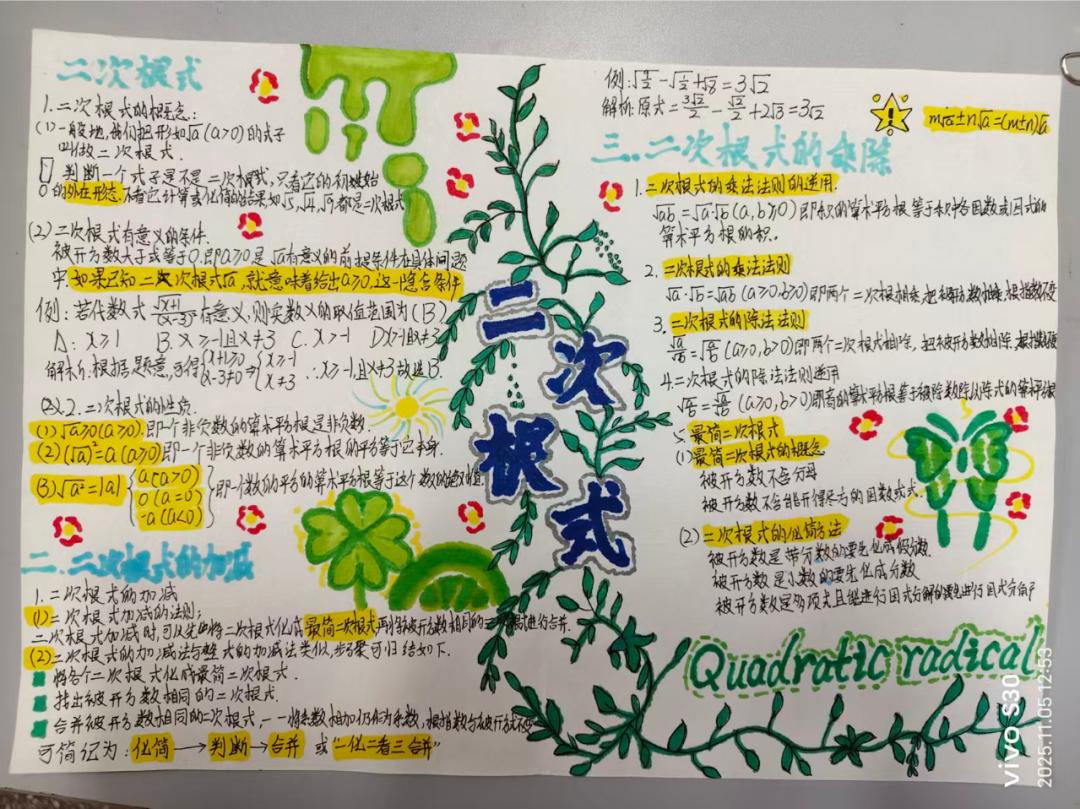 二次根式
1.二次根式的概念:
(1)一般地,我们把形如√a(a≥0)的式子
叫做二次根式.
判断一个式子是不是二次根式,只看它的初始
的外在形态.不看它计算或化简的结果如√5,√4,√9都是二次根式
(2)二次根式有意义的条件.
被开方数大于或等于0.即a≥0是√a有意义的前提条件在具体问题
中.如果已知二次根式√a,就意味着给出a≥0,这一隐含条件
例:若代数式√(x+1)/(x-3)有意义,则实数x的取值范围为(B)
A:x≥1 B.x≥-1且x≠3 C.x>-1 D.x>-1且x≠3
解析:根据题意,可得{x+1≥0 x-3≠0 → {x≥-1 x≠3 ∴x≥-1,且x≠3故选B.
2.二次根式的性质.
(1)√a≥0(a≥0).即一个非负数的算术平方根是非负数.
(2)(√a)²=a(a≥0)即一个非负数的算术平方根的平方等于它本身.
(3)√a²=|a|{a(a>0) 0(a=0) -a(a<0)}即一个数的平方的算术平方根等于这个数的绝对值.
二.二次根式的加减
1.二次根式的加减
(1)二次根式加减的法则:
二次根式加减时,可以先将二次根式化成最简二次根式再将被开方数相同的二次根式进行合并.
(2)二次根式的加减法与整式的加减法类似,步骤可归结如下.
将各个二次根式化成最简二次根式.
找出被开方数相同的二次根式.
合并被开方数相同的二次根式,——将系数相加仍作为系数,根指数与被开方数不变
可简记为:化简→判断→合并 或"一化二看三合并"
二次根式
√8=3√2
解析:原式=3√2/2-√2/2+2√3=3√2
!
m√a±n√a=(m±n)√a
三.二次根式的乘除
1.二次根式的乘法法则的逆用.
√ab=√a·√b(a,b≥0)即积的算术平方根等于积中各因数或因式的
算术平方根的积.
2.二次根式的乘法法则
√a·√b=√ab(a≥0,b≥0)即两个二次根式相乘,把被开方数相乘,根指数不变
3.二次根式的除法法则
√a/√b=√(a/b)(a≥0,b>0)即两个二次根式相除,把被开方数相除,根指数不变
4.二次根式的除法法则逆用
√(a/b)=√a/√b(a≥0,b>0)即商的算术平方根等于被除数除以除式的算术平方根
5.最简二次根式
(1)最简二次根式的概念
被开方数不含分母
被开方数不含能开得尽方的因数或式.
(2)二次根式的化简方法
被开方数是带分数的要先化成假分数.
被开方数是小数的要先化成分数
被开方数是多项式且能进行因式分解的要先进行因式分解
Quadratic radical
vivo S30
2025.11.05 12:53